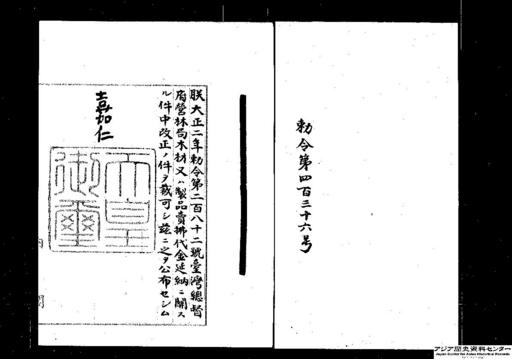 勅令第四百三十六号
朕大正二年勅令第二百八十二號臺灣總督
府營林局木材又ハ製品賣拂代金延納ニ關ス
ル件中改正ノ件ヲ裁可シ茲ニ之ヲ公布セシム
嘉仁
天皇
御璽
内
閣
アジア歴史資料センター
Japan Center for Asian Historical Records